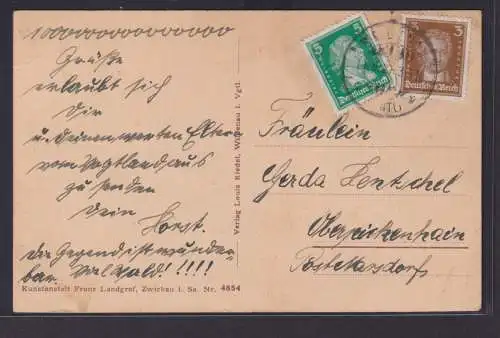 1000000000000000
Grüße
erlaubt sich
Dir
u. Deinen werten Eltern
vom Vogtland aus
zu senden
Dein
Horst.
Die Gegend ist wunder-
bar. Viel Wald! !!!!
Kunstanstalt Franz Landgraf, Zwickau i. Sa. Nr. 4654
Verlag Louis Riedel, i. Vgtl.
5 5
Deutsches Reich
3 3
Deutsches Reich
Fräulein
Gerda Hentschel
Oberpickenhain
Post